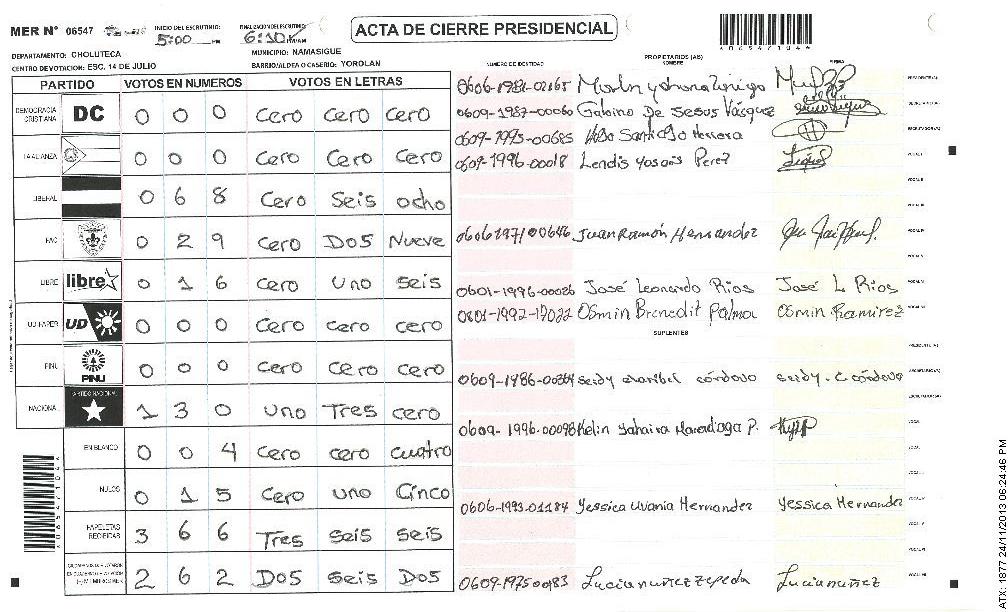 MER N° 06547 INICIO DEL ESCRUTINIO: 5:00 PM FINALIZACION DEL ESCRUTINIO: 6:10 ACTA DE CIERRE PRESIDENCIAL
DEPARTAMENTO: CHOLUTECA MUNICIPIO: NAMASIGUE
CENTRO DE VOTACION: ESC. 14 DE JULIO BARRIO/ALDEA O CASERIO: YOROLAN
NUMERO DE IDENTIDAD PROPIETARIOS (AS) NOMBRE FIRMA
PARTIDO VOTOS EN NUMEROS VOTOS EN LETRAS
DEMOCRACIA CRISTIANA DC 0 0 0 Cero Cero Cero
LA ALIANZA 0 0 0 Cero Cero Cero
LIBERAL 0 6 8 Cero Seis ocho
PAC 0 2 9 Cero Dos Nueve
LIBRE libre 0 1 6 Cero uno seis
UD 0 0 0 Cero cero cero
PINU PINU 0 0 0 Cero Cero Cero
NACIONAL PARTIDO NACIONAL 1 3 0 uno Tres cero
EN BLANCO 0 0 4 Cero cero cuatro
NULOS 0 1 5 Cero uno Cinco
PAPELETAS RECIBIDAS 3 6 6 Tres seis seis
2 6 2 Dos seis Dos
0606-1981-02165
0609-1987-00060 Gabino De Jesus Vásquez
0609-1995-00685 Santiago Herrera
0609-1996-00018 Lendis Perez
0606 1971 00646 Juan Ramón Hernandez
0601-1996-00026 José Leonardo Rios José L Rios
0801-1992-17022 Osmin Brenedit Palma Osmin Ramirez
SUPLENTES
0609-1986-00364 seidy maribel córdova seidy. c córdova
0609-1996-00098 Kelin Yahaira P.
0606-1993-01184 Yessica Uvania Hernandez Yessica Hernandez
0609-1975 00183 Lucia nuñez zepeda Lucia nuñez
ATX: 1877 24/11/2013 06:24:46 PM